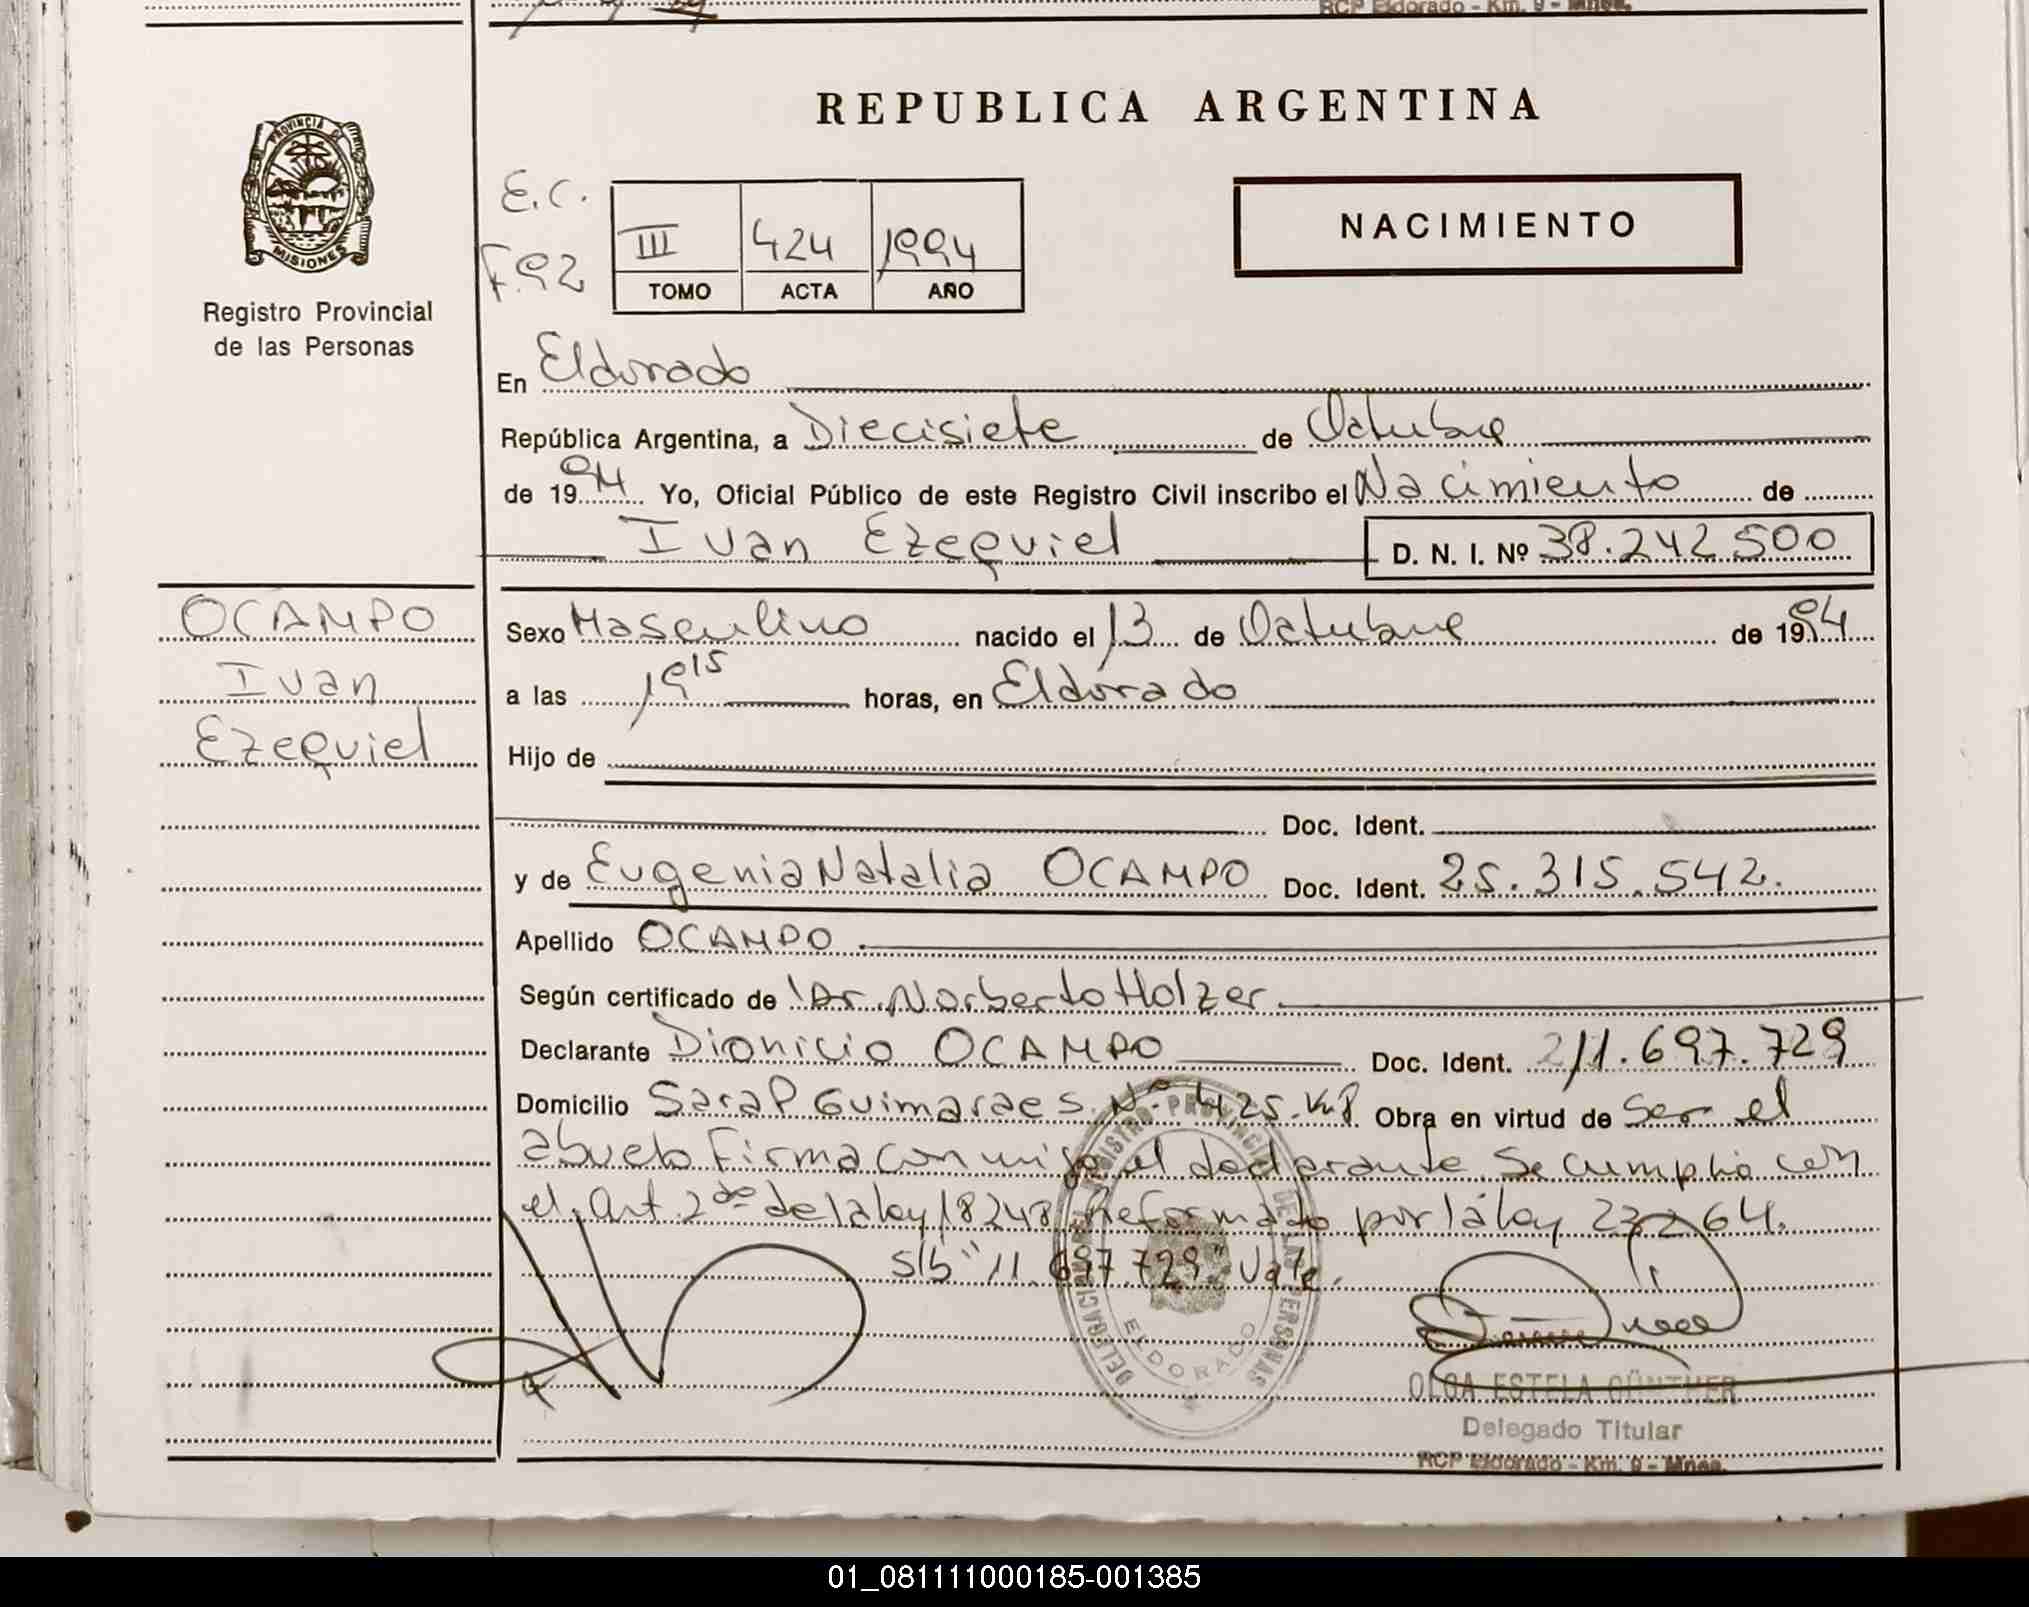 RCP Eldorado - Km. 9 - Mnes.
PROVINCIA DE
MISIONES
Registro Provincial
de las Personas
REPUBLICA ARGENTINA
E.C.
F.92
III 424 1994
TOMO ACTA AÑO
NACIMIENTO
En Eldorado
República Argentina, a Diecisiete de Octubre
de 1994 Yo, Oficial Público de este Registro Civil inscribo el Nacimiento de
Ivan Ezequiel D. N. I. Nº 38.242.500
OCAMPO
Ivan
Ezequiel
Sexo Masculino nacido el 13 de Octubre de 1994
a las 19 15 horas, en Eldorado
Hijo de
Doc. Ident.
y de Eugenia Natalia OCAMPO Doc. Ident. 25.315.542.
Apellido OCAMPO
Según certificado de Dr. Norberto Holzer
Declarante Dionicio OCAMPO Doc. Ident. 11.697.729
Domicilio Sara P Guimaraes Nº 425. Obra en virtud de Ser el
abuelo Firma conmigo el declarante. Se cumplio con
el Art. 2do de la ley 18248 Reformado por la ley 23264.
s/b "11.697.729" Vale.
DELEGACION REGISTRO PROVINCIAL DE LAS PERSONAS
ELDORADO
OLGA ESTELA GÜNTHER
Delegado Titular
RCP Eldorado - Km. 9 - Mnes.
01_081111000185-001385